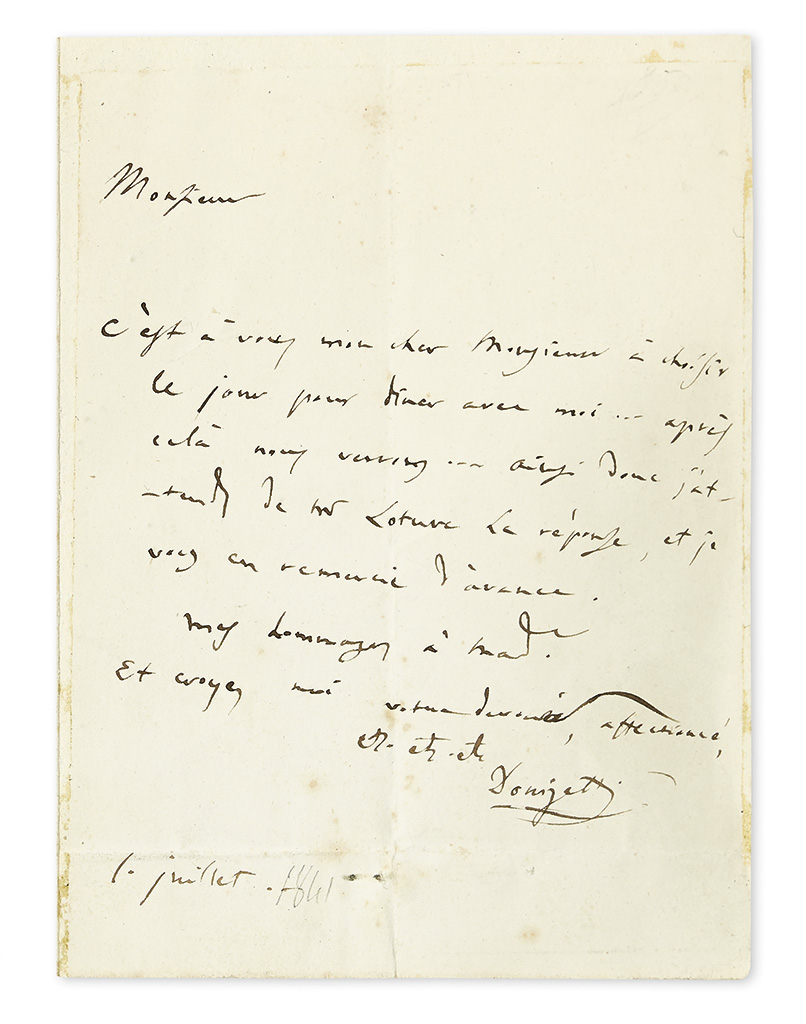 Monsieur
C'est à vous mon cher Monsieur à choisir
le jour pour diner avec moi ... après
celà nous verrons ... ainsi donc j'at-
-tends de la réponse, et je
vous en remercie d'avance.
mes hommages à Mad.e
Et croyez moi votre devoué, affectionné,
etc. etc. etc.
Donizetti
1. juillet. 1841